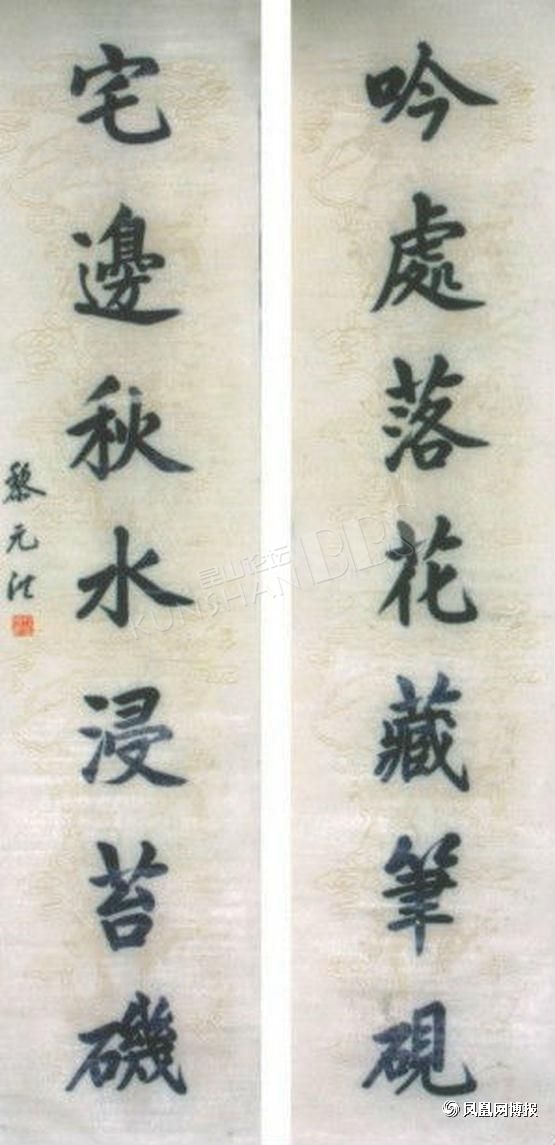 吟處落花藏筆硯
宅邊秋水浸苔磯
黎元洪
昆山论坛
KUNSHAN BBS
凤凰网博报